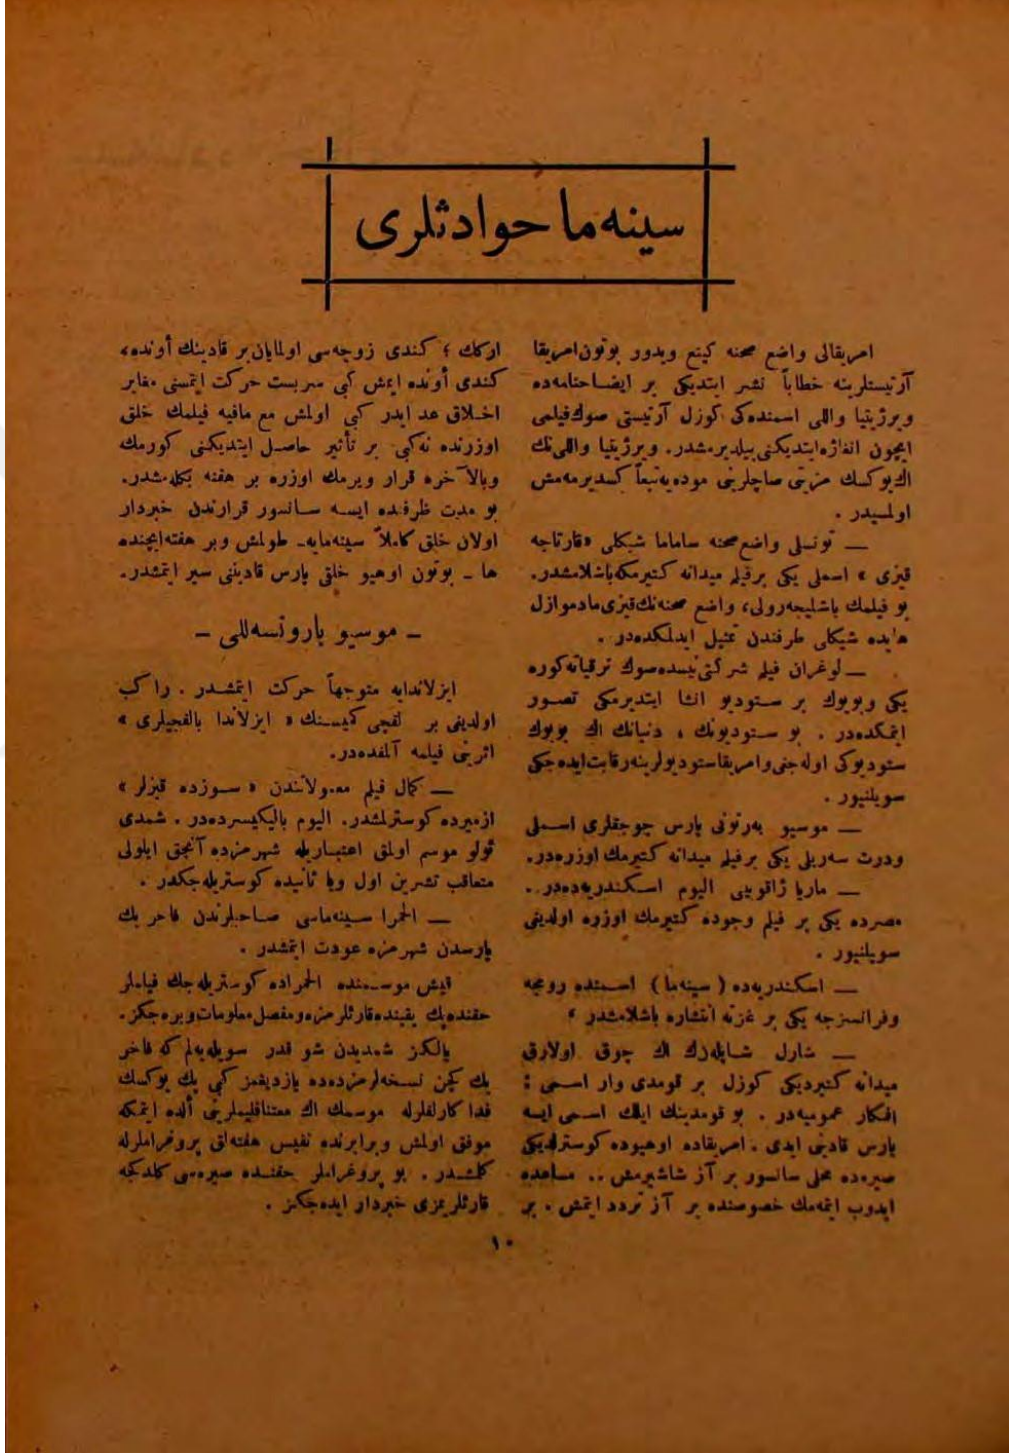 سینه‌ما حوادثلری
امریقالی واضع صحنه کینغ ویدور بوتون امریقا
آرتیستلرینه خطاباً نشر ایتدیکی بر ایضاحنامه‌ده
ویرژینیا واللی اسمنده‌کی کوزل آرتیستی صوك فیلمی
ایچون انغاژه ایتدیکنی بیلدیرمشدر. ویرژینیا واللی‌نك
اك یوکسك مزیتی صاچلرینی موده‌یه تبعاً کسدیرمه‌مش
اولمسیدر .
— تونسلی واضع صحنه ساماما شیکلی «قارتاجه
قیزی » اسملی یکی بر فیلم میدانه کتیرمکه باشلامشدر.
بو فیلمك باشلیجه رولی، واضع صحنه‌نك قیزی مادموازل
هایده شیکلی طرفندن تمثیل ایدلمکده‌در .
— لوغران فیلم شرکتی نیسده صوك ترقیاته کوره
یکی وبویوك بر ستودیو انشا ایتدیرمکی تصور
ایتمکده‌در . بو ستودیونك ، دنیانك اك بویوك
ستودیوکی اوله‌جنی وامریقا ستودیولرینه رقابت ایده‌جکی
سویلنیور .
— موسیو به‌رتونی پارس چوجقلری اسملی
ودرت سه‌ریلی یکی بر فیلم میدانه کتیرمك اوزره‌در.
— ماریا ژاقوبینی الیوم اسکندریه‌ده‌در .
مصرده یکی بر فیلم وجوده کتیرمك اوزره اولدیغی
سویلنیور .
— اسکندریه‌ده ( سینه‌ما ) اسمنده رومجه
وفرانسزجه یکی بر غزته انتشاره باشلامشدر ،
— شارل شاپله‌نك اك چوق اولارق
میدانه کتیردیکی کوزل بر قومدی وار اسمی :
افکار عمومیه‌در . بو قومدینك ایلك اسمی ایسه
پارس قادینی ایدی . امریقاده اوهیوده کوسترلدیکی
صیره‌ده محلی سانسور بر آز شاشیرمش .. مساعده
ایدوب ایتمه‌مك خصوصنده بر آز تردد ایتمش . بر
ارکك ؛ کندی زوجه‌سی اولمایان بر قادینك أونده،
کندی أونده ایمش کبی سربست حرکت ایتمسنی مغایر
اخلاق عد ایدر کبی اولمش مع مافیه فیلمك خلق
اوزرنده نه‌کبی بر تأثیر حاصل ایتدیکنی کورمك
وبالآخره قرار ویرمك اوزره بر هفته بکله‌مشدر.
بو مدت ظرفنده ایسه سانسور قرارندن خبردار
اولان خلق کاملاً سینه‌مایه طولمش وبر هفته ایچنده
ها ـ بوتون اوهیو خلقی پارس قادیننی سیر ایتمشدر.
ـ موسیو بارونسه‌للی ـ
ایزلاندایه متوجهاً حرکت ایتمشدر . راکب
اولدیغی بر کمیسنك « ایزلاندا بالقجیلری »
اثرینی فیلمه آلمقده‌در.
— کمال فیلم معمولاتندن « سوزده قیزلر »
ازمیرده کوسترلمشدر. الیوم بالیکیسرده‌در . شمدی
موسم اولمق اعتباریله شهرمزده آنجق ایلولی
متعاقب تشرین اول ویا ثانیده کوستریله‌جکدر .
— الحمرا سینه‌ماسی صاحبلرندن فاخر بك
پارسدن شهرمزه عودت ایتمشدر .
قیش موسمنده الحمراده کوستریله‌جك فیلملر
حقنده پك یقینده قارئلرمزه مفصل معلومات ویره‌جکز.
یالکز شمدیدن شو قدر سویله‌یه‌لم که فاخر
بك کچن نسخه‌لرمزده‌ده یازدیغمز کبی پك یوکسك
فداکارلقلرله موسمك اك معتنا فیلملرینی ألده ایتمکه
موفق اولمش وبرابرنده نفیس هفته‌لق پروغراملرله
کلمشدر . بو پروغراملر حقنده صیره‌سی کلدکجه
قارئلریمزی خبردار ایده‌جکز .
۱۰